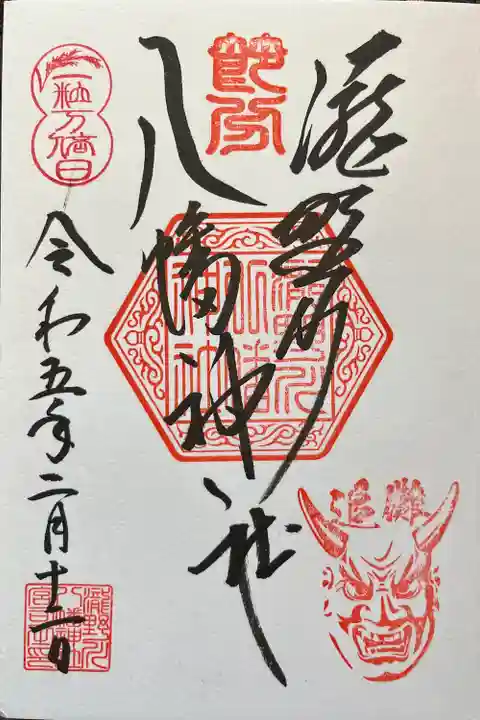 瀧野川
八幡神社
節分
一粒万倍日
令和五年二月十二日
瀧野川
八幡
神社
追儺
瀧野川
八幡神社
宮司之印